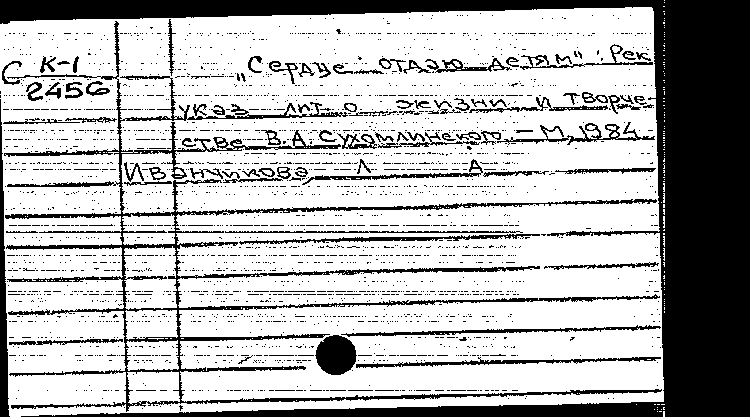 С К-1
2456
„Сердце отдаю детям": Рек
указ лит. о жизни и творче-
стве В.А.Сухомлинского. – М, 1984.
Иванчикова, Л А